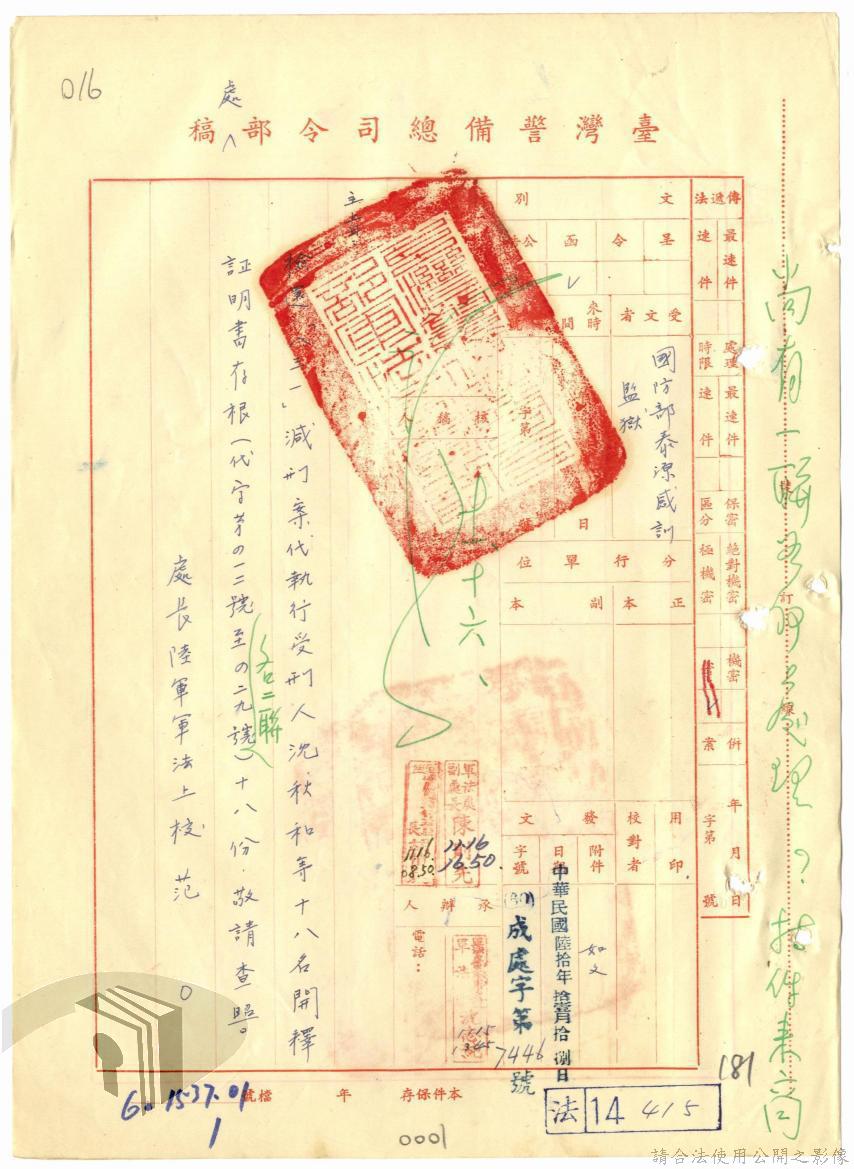 016
處
臺灣警備總司令部稿
傳遞法
最速件
速件
處理時限
最速件
速件
保密區分
絕對機密
極機密
機密
併案
年月日
字第
號
文別
呈
令
函
公
受文者
國防部泰源感訓
監獄
來時間
日
字第
號
分行單位
正本
副本
核稿人
用印
校對者
發文
附件
如文
日期
中華民國陸拾年拾壹月拾捌日
字號
(60)成處字第7446號
承辦人
電話：
軍法處
副處長陳
11.16
16.50.
11.16.
08.50.
11.15
主旨：
檢送
減刑案代執行受刑人沈秋和等十八名開釋
証明書存根（代字第0一二號至0二九號）十八份，敬請查照。
各二聯
處長陸軍軍法上校范
十六、
尚有一聯
處理？
訂
線
181
法 14 415
本件保存
年
檔號
6. 1537.01
1
0001
請合法使用公開之影像